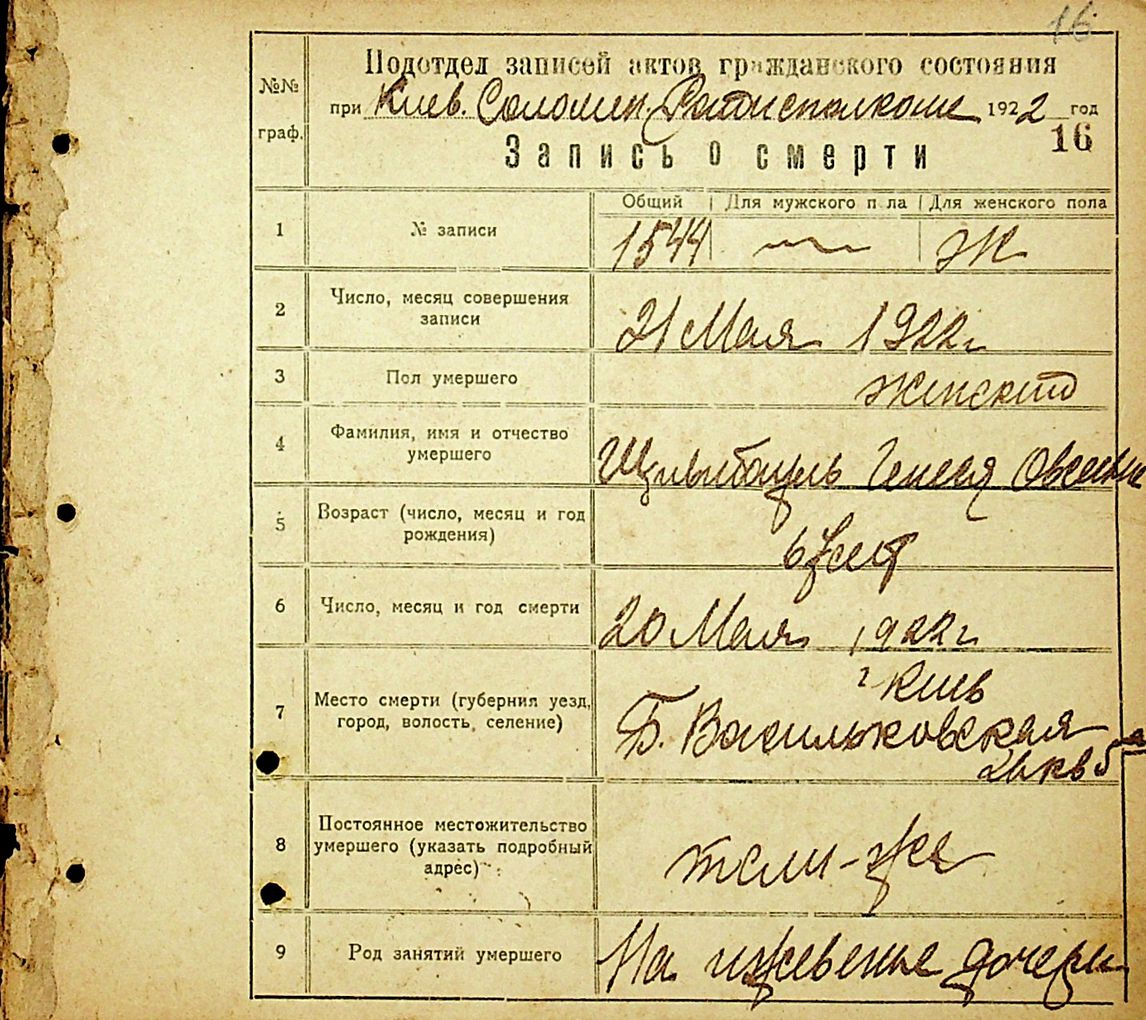 16
Подотдел записей актов гражданского состояния
№№ граф.
при Киев. Соломен. 1922 год
16
Запись о смерти
Общий Для мужского п ла Для женского пола
1 № записи 1544 Ж
2 Число, месяц совершения
записи
21 Мая 1922 г
3 Пол умершего женский
4 Фамилия, имя и отчество
умершего
5 Возраст (число, месяц и год
рождения)
лет
6 Число, месяц и год смерти 20 Мая 1922 г
г Киев
7 Место смерти (губерния уезд,
город, волость, селение)
Б. Васильковская
кв 5
8 Постоянное местожительство
умершего (указать подробный
адрес)
там-же
9 Род занятий умершего На дочери